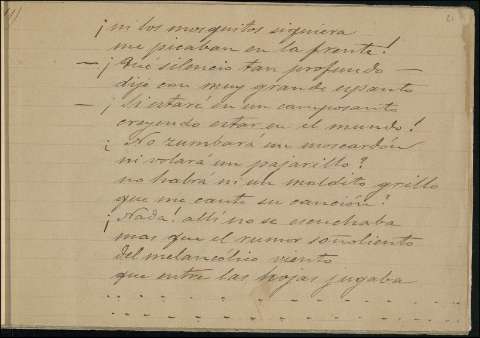 ¡ni los mosquitos siquiera
me picaban en la frente!
—¡Qué silencio tan profundo—
dije con muy grande espanto
—¡Si estaré en un camposanto
creyendo estar en el mundo!
¿No zumbará un moscardón
ni volará un pajarillo?
no habrá ni un maldito grillo
que me cante su canción?
¡Nada! allí no se escuchaba
mas que el rumor soñoliento
del melancólico viento
que entre las hojas jugaba
. . . . . . . . . . . .
. . . . . . . . . . . .